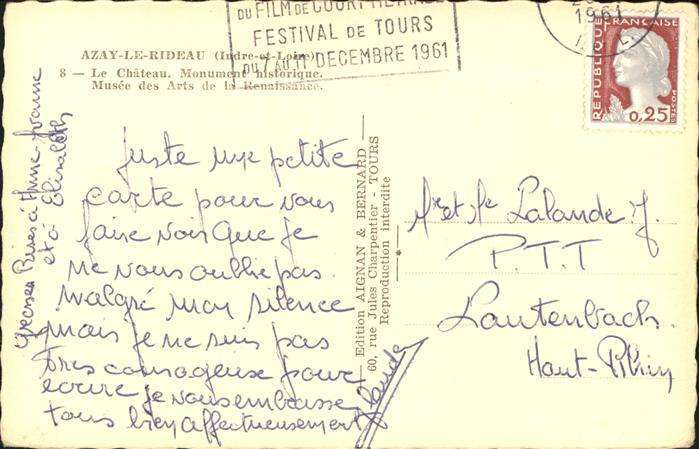 DU FILM DE COURT METRAGE
FESTIVAL DE TOURS
DU 7 AU 11 DECEMBRE 1961
1961
REPUBLIQUE FRANÇAISE
POSTES
0,25
AZAY-LE-RIDEAU (Indre-et-Loire)
8 — Le Château. Monument historique.
Musée des Arts de la Renaissance.
Juste une petite
carte pour vous
faire voir que je
ne vous oublie pas
malgré mon silence
mais je ne suis pas
très courageuse pour
écrire je vous embrasse
tous bien affectueusement
Grosses Bises à Anne-Yvonne
et à Elisabeth
Edition AIGNAN & BERNARD
60, rue Jules Charpentier - TOURS
Reproduction interdite
Mr et Me Lalande J.
P.T.T
Lautenbach
Haut-Rhin